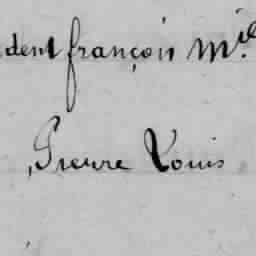 dent françois M.
Pierre Louis